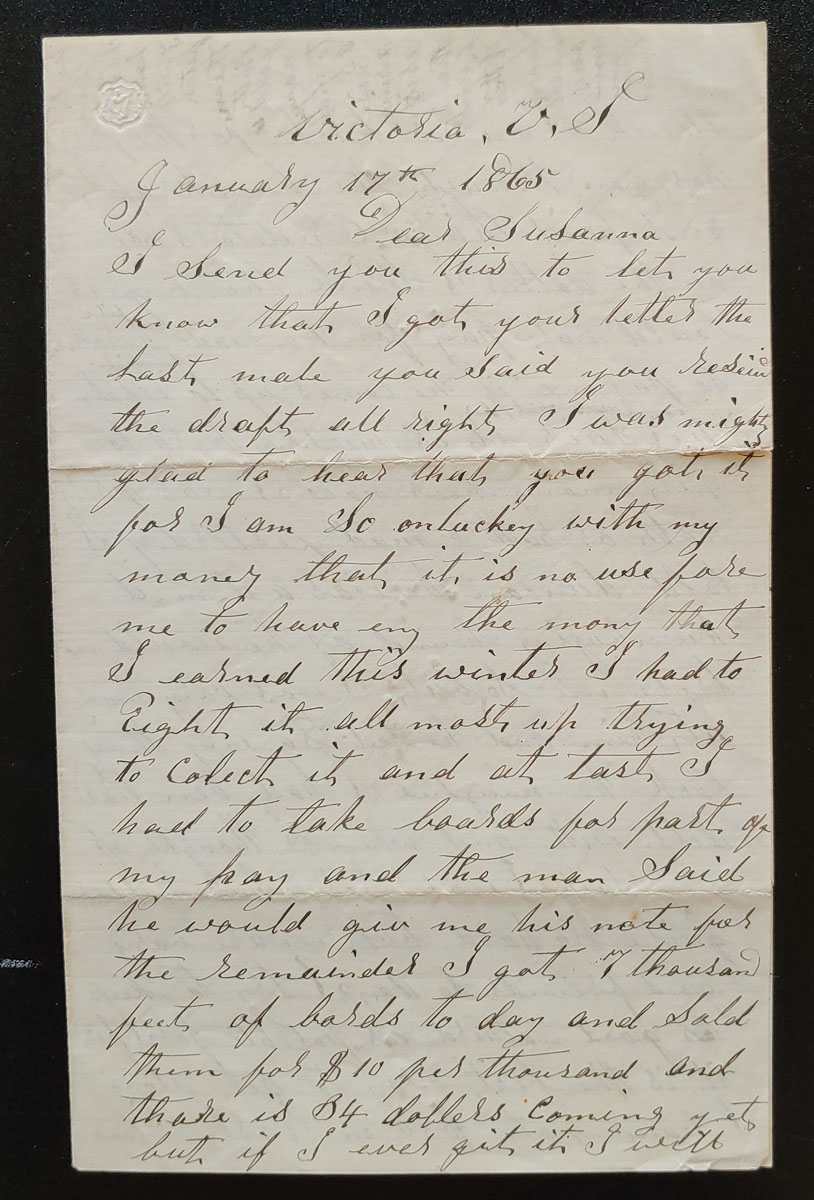 Victoria, V. I
January 17th 1865
Dear Susanna
I Send you this to let you
know that I got your letter the
last male you Said you
the draft all right I was mighty
glad to hear that you got it
for I am So onluckey with my
money that it is no use fore
me to have eny the mony that
I earned this winter I had to
Eight it all most up trying
to Colect it and at last I
had to take boards for part of
my pay and the man Said
he would giv me his note for
the remainder I got 7 thousand
feet of bords to day and Sold
them for $10 per thousand and
thare is 34 dollers Coming yet
but if I ever git it I will